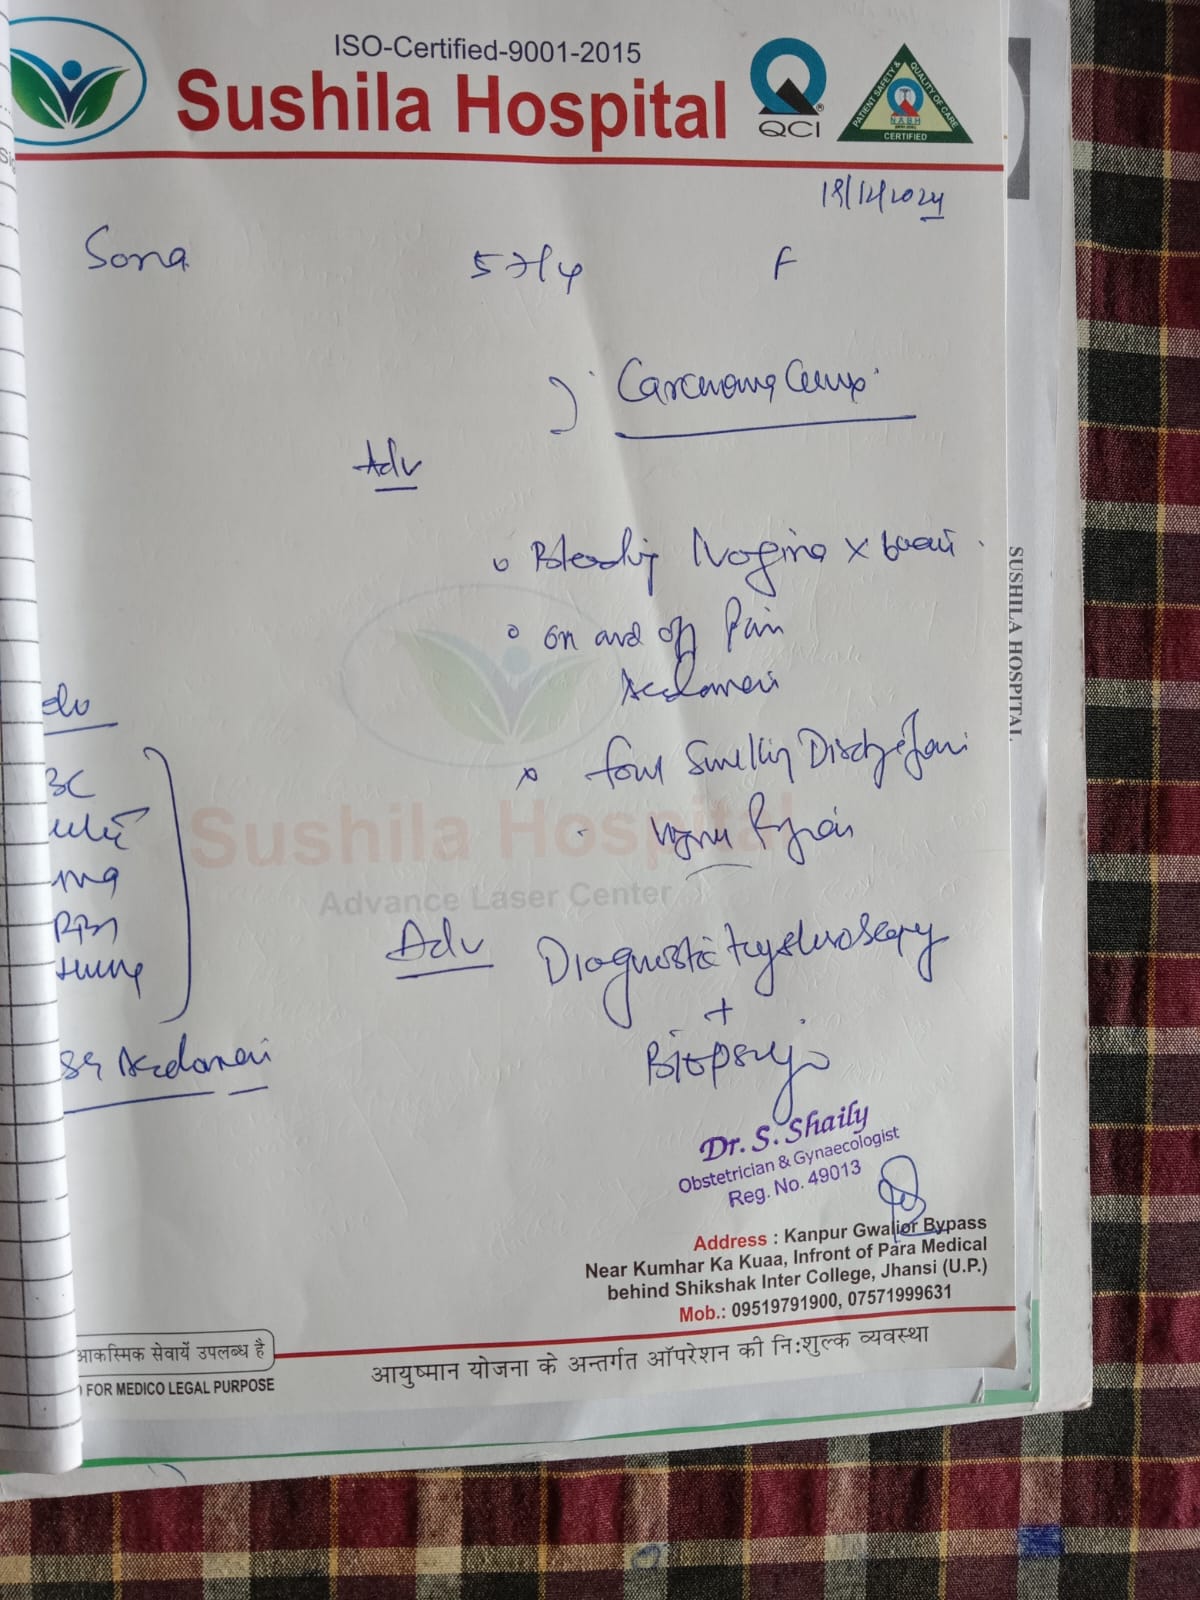 ISO-Certified-9001-2015
Sushila Hospital
QCI
PATIENT SAFETY & QUALITY OF CARE
NABH
CERTIFIED
18/12/2024
Sona 57/y F
Carcinoma Cervix
Adv
Bleeding Vagina x
on and off Pain
Abdomen
foul Smelling Discharge from
Sushila Hospital
Advance Laser Center
Adv Diagnostic Hysteroscopy
+
Biopsy
Abdomen
SUSHILA HOSPITAL
Dr. S. Shaily
Obstetrician & Gynaecologist
Reg. No. 49013
Address : Kanpur Gwalior Bypass
Near Kumhar Ka Kuaa, Infront of Para Medical
behind Shikshak Inter College, Jhansi (U.P.)
Mob.: 09519791900, 07571999631
आकस्मिक सेवायें उपलब्ध है
FOR MEDICO LEGAL PURPOSE
आयुष्मान योजना के अन्तर्गत ऑपरेशन की नि:शुल्क व्यवस्था